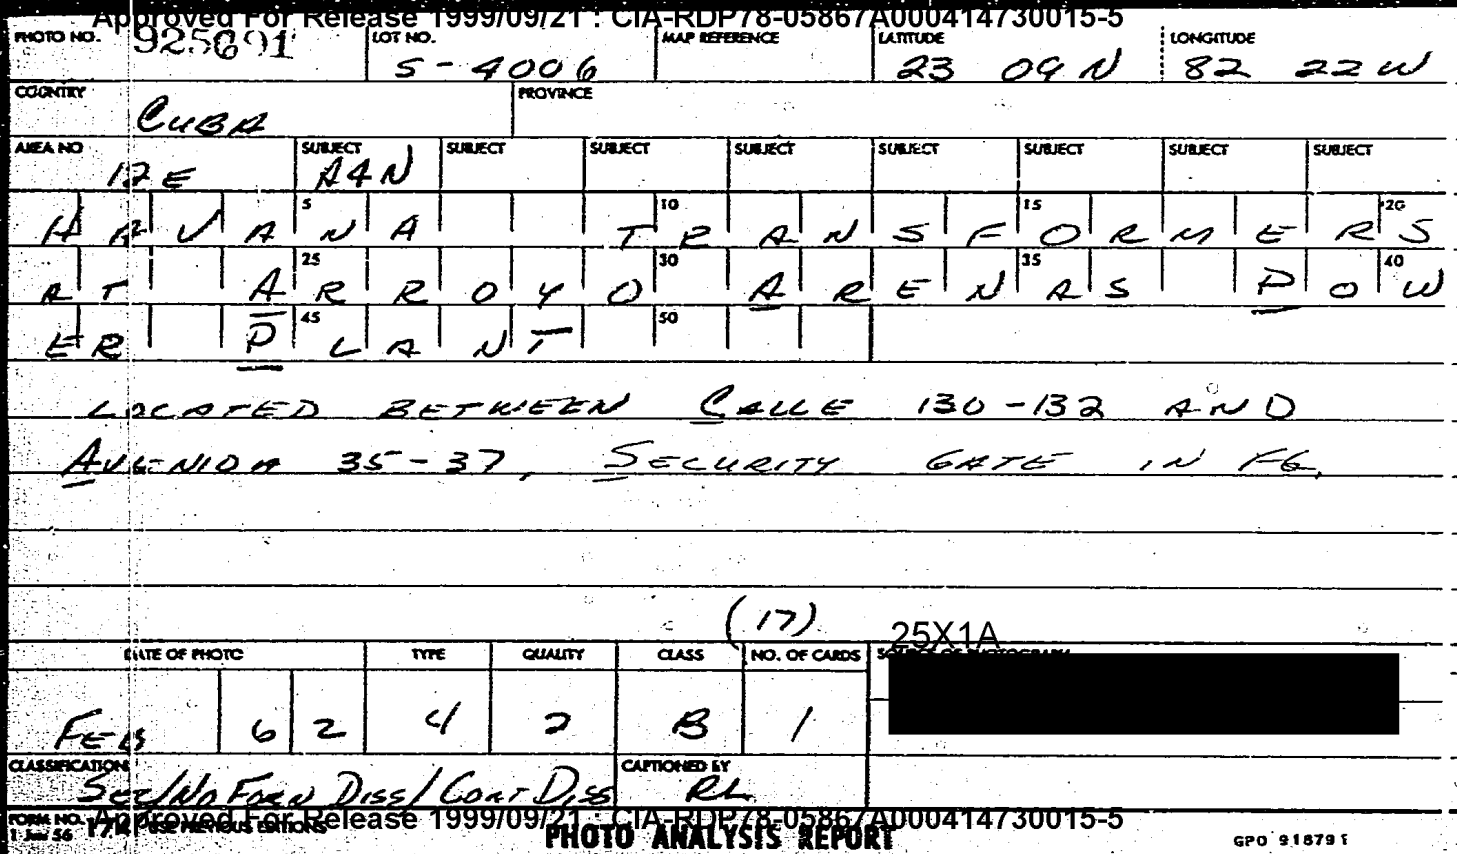 Approved For Release 1999/09/21 : CIA-RDP78-05867A000414730015-5
PHOTO NO. 925691 LOT NO. S-4006 MAP REFERENCE LATITUDE 23 09 N LONGITUDE 82 22 W
COUNTRY CUBA PROVINCE
AREA NO 12E SUBJECT A4N SUBJECT SUBJECT SUBJECT SUBJECT SUBJECT SUBJECT SUBJECT
5 10 15 20
HAVANA TRANSFORMERS
25 30 35 40
AT ARROYO ARENAS POW
45 50
ER PLANT
LOCATED BETWEEN CALLE 130-132 AND
AVENIDA 35-37, SECURITY GATE IN FG.
(17)
25X1A
DATE OF PHOTO TYPE QUALITY CLASS NO. OF CARDS SOURCE OF PHOTOGRAPH
FEB 62 4 2 B 1
CLASSIFICATION SEC/NO FORN DISS/CONT DISS CAPTIONED BY RL
Approved For Release 1999/09/21 : CIA-RDP78-05867A000414730015-5
FORM NO. 1 Jun 56 USE PREVIOUS EDITIONS PHOTO ANALYSIS REPORT GPO 918791